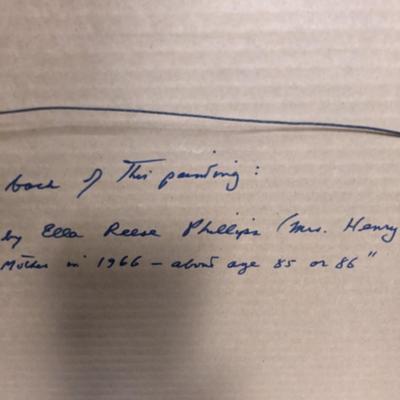 back of This painting:
by Ella Reese Phillips (Mrs. Henry
Mother in 1966 - about age 85 or 86"